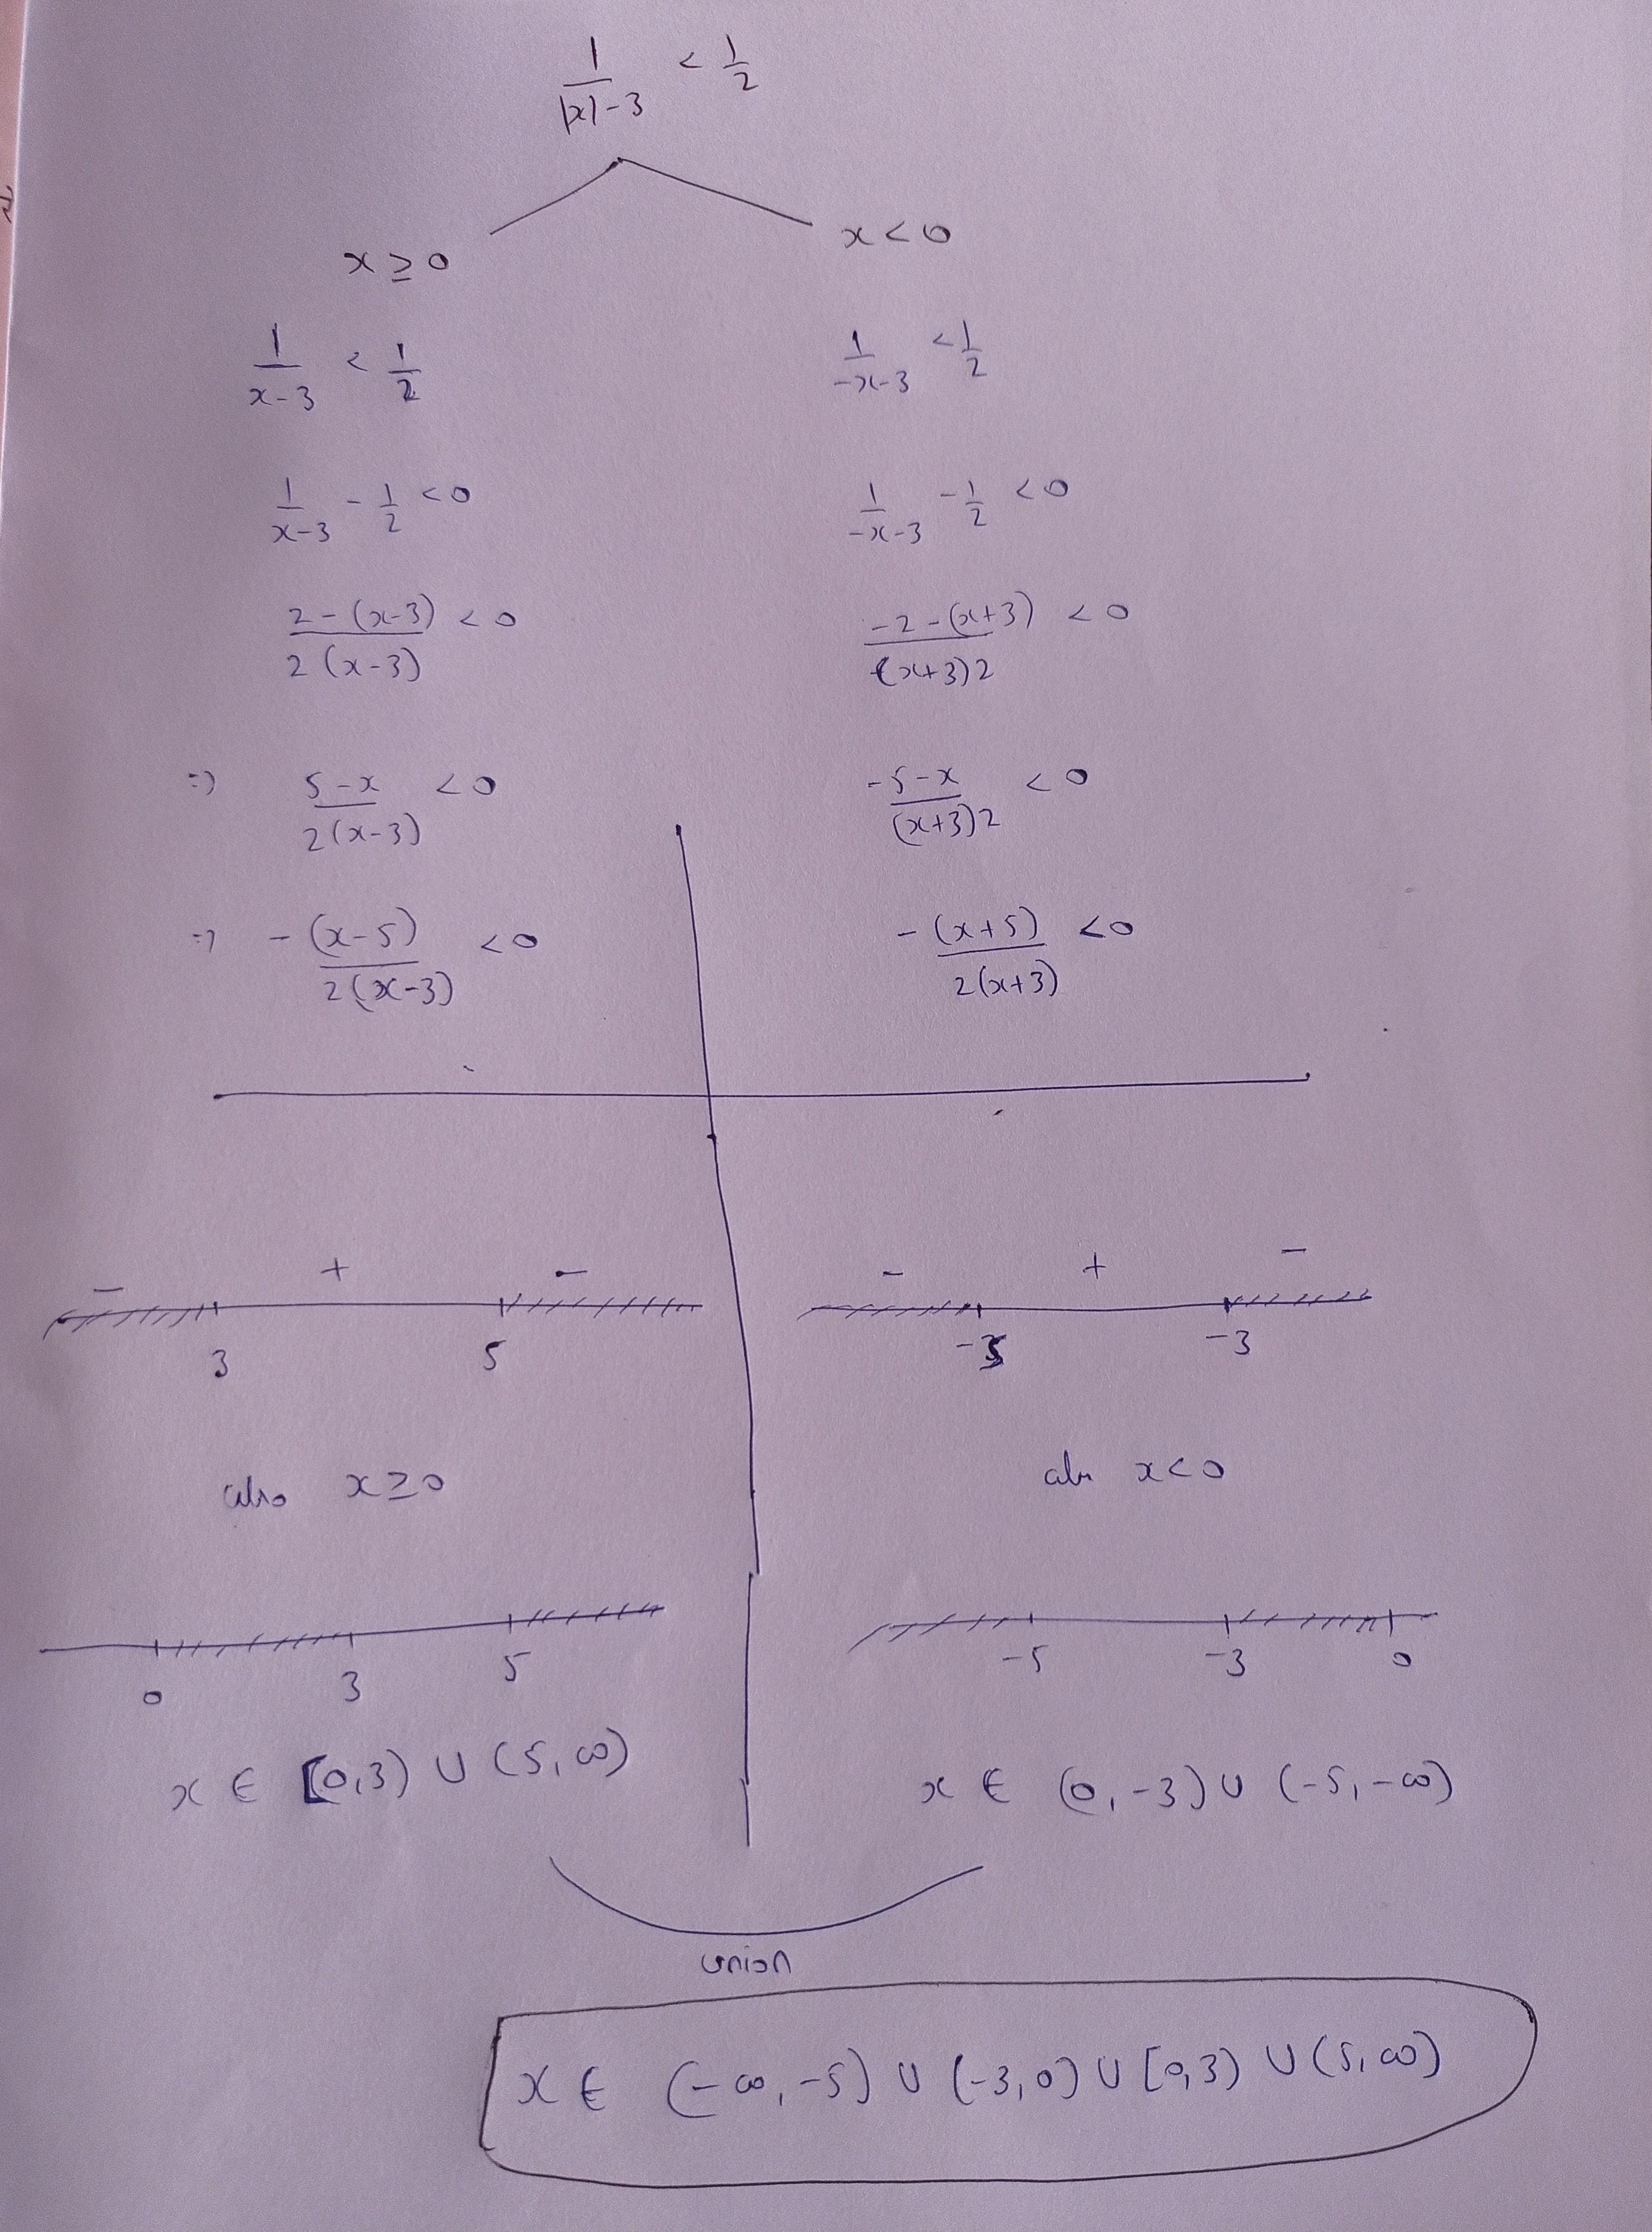 1/(|x|-3) < 1/2
x ≥ 0
x < 0
1/(x-3) < 1/2
1/(-x-3) < 1/2
1/(x-3) - 1/2 < 0
1/(-x-3) - 1/2 < 0
(2-(x-3))/(2(x-3)) < 0
(-2-(x+3))/((x+3)2) < 0
=> (5-x)/(2(x-3)) < 0
(-5-x)/((x+3)2) < 0
=> -(x-5)/(2(x-3)) < 0
-(x+5)/(2(x+3)) < 0
- + -
3 5
- + -
-5 -3
also x ≥ 0
also x < 0
0 3 5
-5 -3 0
x ∈ [0,3) ∪ (5,∞)
x ∈ (0,-3) ∪ (-5,-∞)
union
x ∈ (-∞,-5) ∪ (-3,0) ∪ [0,3) ∪ (5,∞)